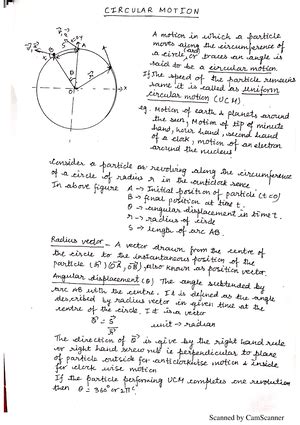 CIRCULAR MOTION
A motion in which a particle
moves along the circumference of
a circle (arc) or traces an angle is
said to be a circular motion.
If the speed of the particle remains
same it is called as uniform
circular motion (UCM).
eg. Motion of earth & planets around
the sun, Motion of tip of minute
hand, hour hand, second hand
of a clock, motion of an electron
around the nucleus
Consider a particle revolving along the circumference
of a circle of radius r in the anticlock sense
In above figure A → Initial position of particle (t=0)
B → final position at time t.
θ → angular displacement in time t.
r → radius of circle
S → length of arc AB.
Radius vector - A vector drawn from the centre of
the circle to the instantaneous position of the
particle also known as position vector.
Angular displacement (θ) The angle subtended by
arc AB with the centre. It is defined as the angle
described by radius vector in given time at the
centre of the circle. It is a vector
unit → radian
The direction of θ is give by the right hand rule
or right hand screw rule is perpendicular to plane
of particle outside for anticlockwise motion & inside
for clock wise motion
If the particle performing UCM completes one revolution
then θ = 360° or 2π
Scanned by CamScanner